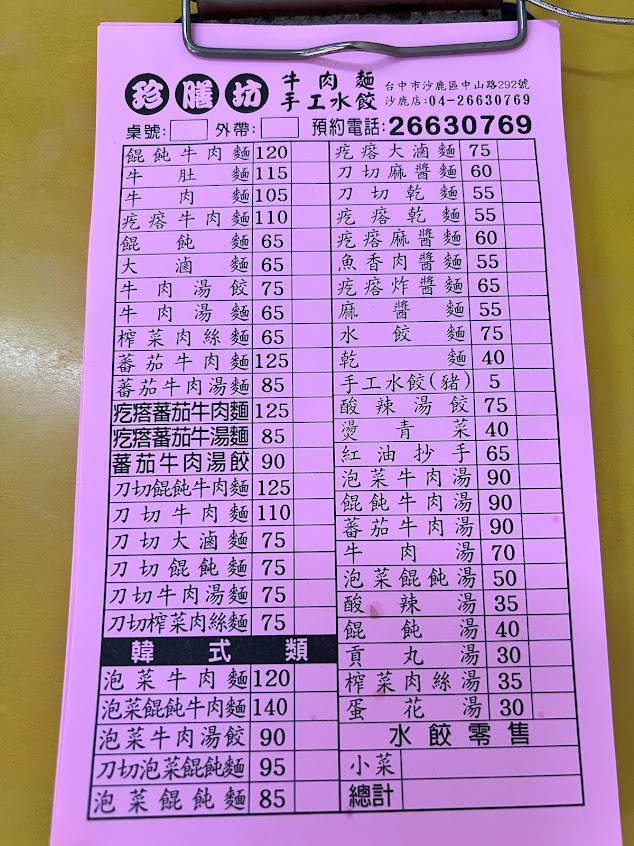 珍膳坊
牛肉麵
手工水餃
台中市沙鹿區中山路292號
沙鹿店:04-26630769
桌號: 外帶: 預約電話:26630769
餛飩牛肉麵 120
牛肚麵 115
牛肉麵 105
疙瘩牛肉麵 110
餛飩麵 65
大滷麵 65
牛肉湯餃 75
牛肉湯麵 65
榨菜肉絲麵 65
蕃茄牛肉麵 125
蕃茄牛肉湯麵 85
疙瘩蕃茄牛肉麵 125
疙瘩蕃茄牛湯麵 85
蕃茄牛肉湯餃 90
刀切餛飩牛肉麵 125
刀切牛肉麵 110
刀切大滷麵 75
刀切餛飩麵 75
刀切牛肉湯麵 75
刀切榨菜肉絲麵 75
韓式類
泡菜牛肉麵 120
泡菜餛飩牛肉麵 140
泡菜牛肉湯餃 90
刀切泡菜餛飩麵 95
泡菜餛飩麵 85
疙瘩大滷麵 75
刀切麻醬麵 60
刀切乾麵 55
疙瘩乾麵 55
疙瘩麻醬麵 60
魚香肉醬麵 55
疙瘩炸醬麵 65
麻醬麵 55
水餃麵 75
乾麵 40
手工水餃(豬) 5
酸辣湯餃 75
燙青菜 40
紅油抄手 65
泡菜牛肉湯 90
餛飩牛肉湯 90
蕃茄牛肉湯 90
牛肉湯 70
泡菜餛飩湯 50
酸辣湯 35
餛飩湯 40
貢丸湯 30
榨菜肉絲湯 35
蛋花湯 30
水餃零售
小菜
總計